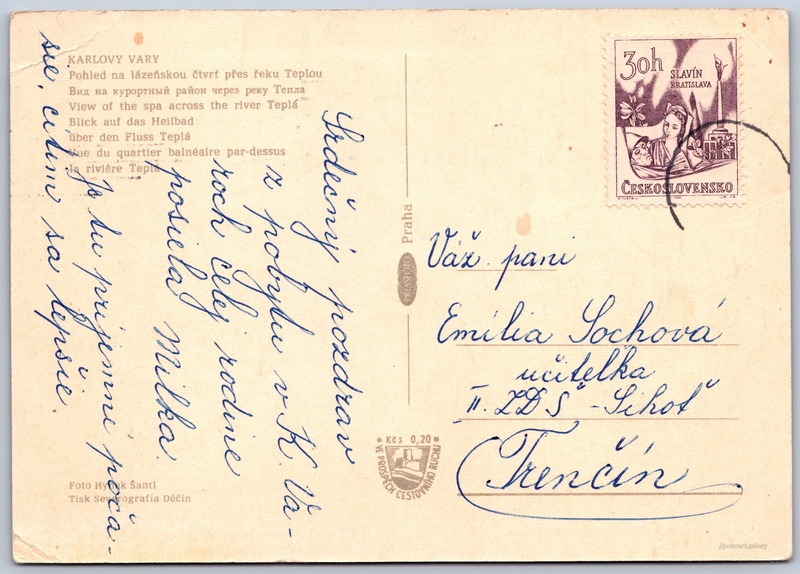 KARLOVY VARY
Pohled na lázeňskou čtvrť přes řeku Teplou
Вид на курортный район через реку Тепла
View of the spa across the river Teplá
Blick auf das Heilbad
über den Fluss Teplá
Vue du quartier balnéaire par-dessus
la rivière Teplá
Srdečný pozdrav
z pobytu v K. Va-
roch celej rodine
posiela Milka
Je tu príjemné poča-
sie, cítim sa lepšie.
Foto Hynek Šantl
Tisk Severografia Děčín
PRESSFOTO Praha
Kčs 0,20
VE PROSPĚCH CESTOVNÍHO RUCHU
30h
SLAVÍN
BRATISLAVA
ČESKOSLOVENSKO
Váž. pani
Emília Sochová
učiteľka
II. ZDŠ - Sihoť
Trenčín